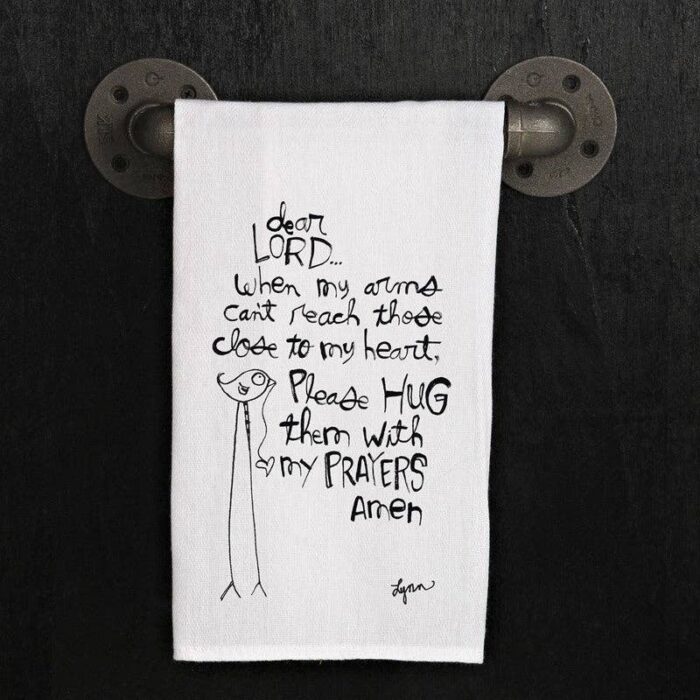 dear
LORD...
when my arms
can't reach those
close to my heart,
Please HUG
them with
my PRAYERS
Amen
Lynn